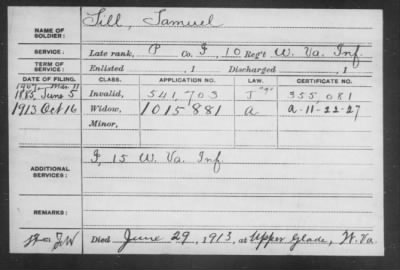 NAME OF SOLDIER: Till, Samuel
SERVICE: Late rank, P Co. I, 10 Reg't W. Va. Inf.
TERM OF SERVICE: Enlisted , 1 Discharged , 1
DATE OF FILING. CLASS. APPLICATION NO. LAW. CERTIFICATE NO.
1907, Mar. 11
1885, June 5 Invalid, 541,703 J 355,081
1913 Oct 16 Widow, 1015881 a a-11-22-27
Minor,
ADDITIONAL SERVICES: I, 15 W. Va. Inf.
REMARKS:
Died June 29, 1913, at Upper Glade, W. Va.